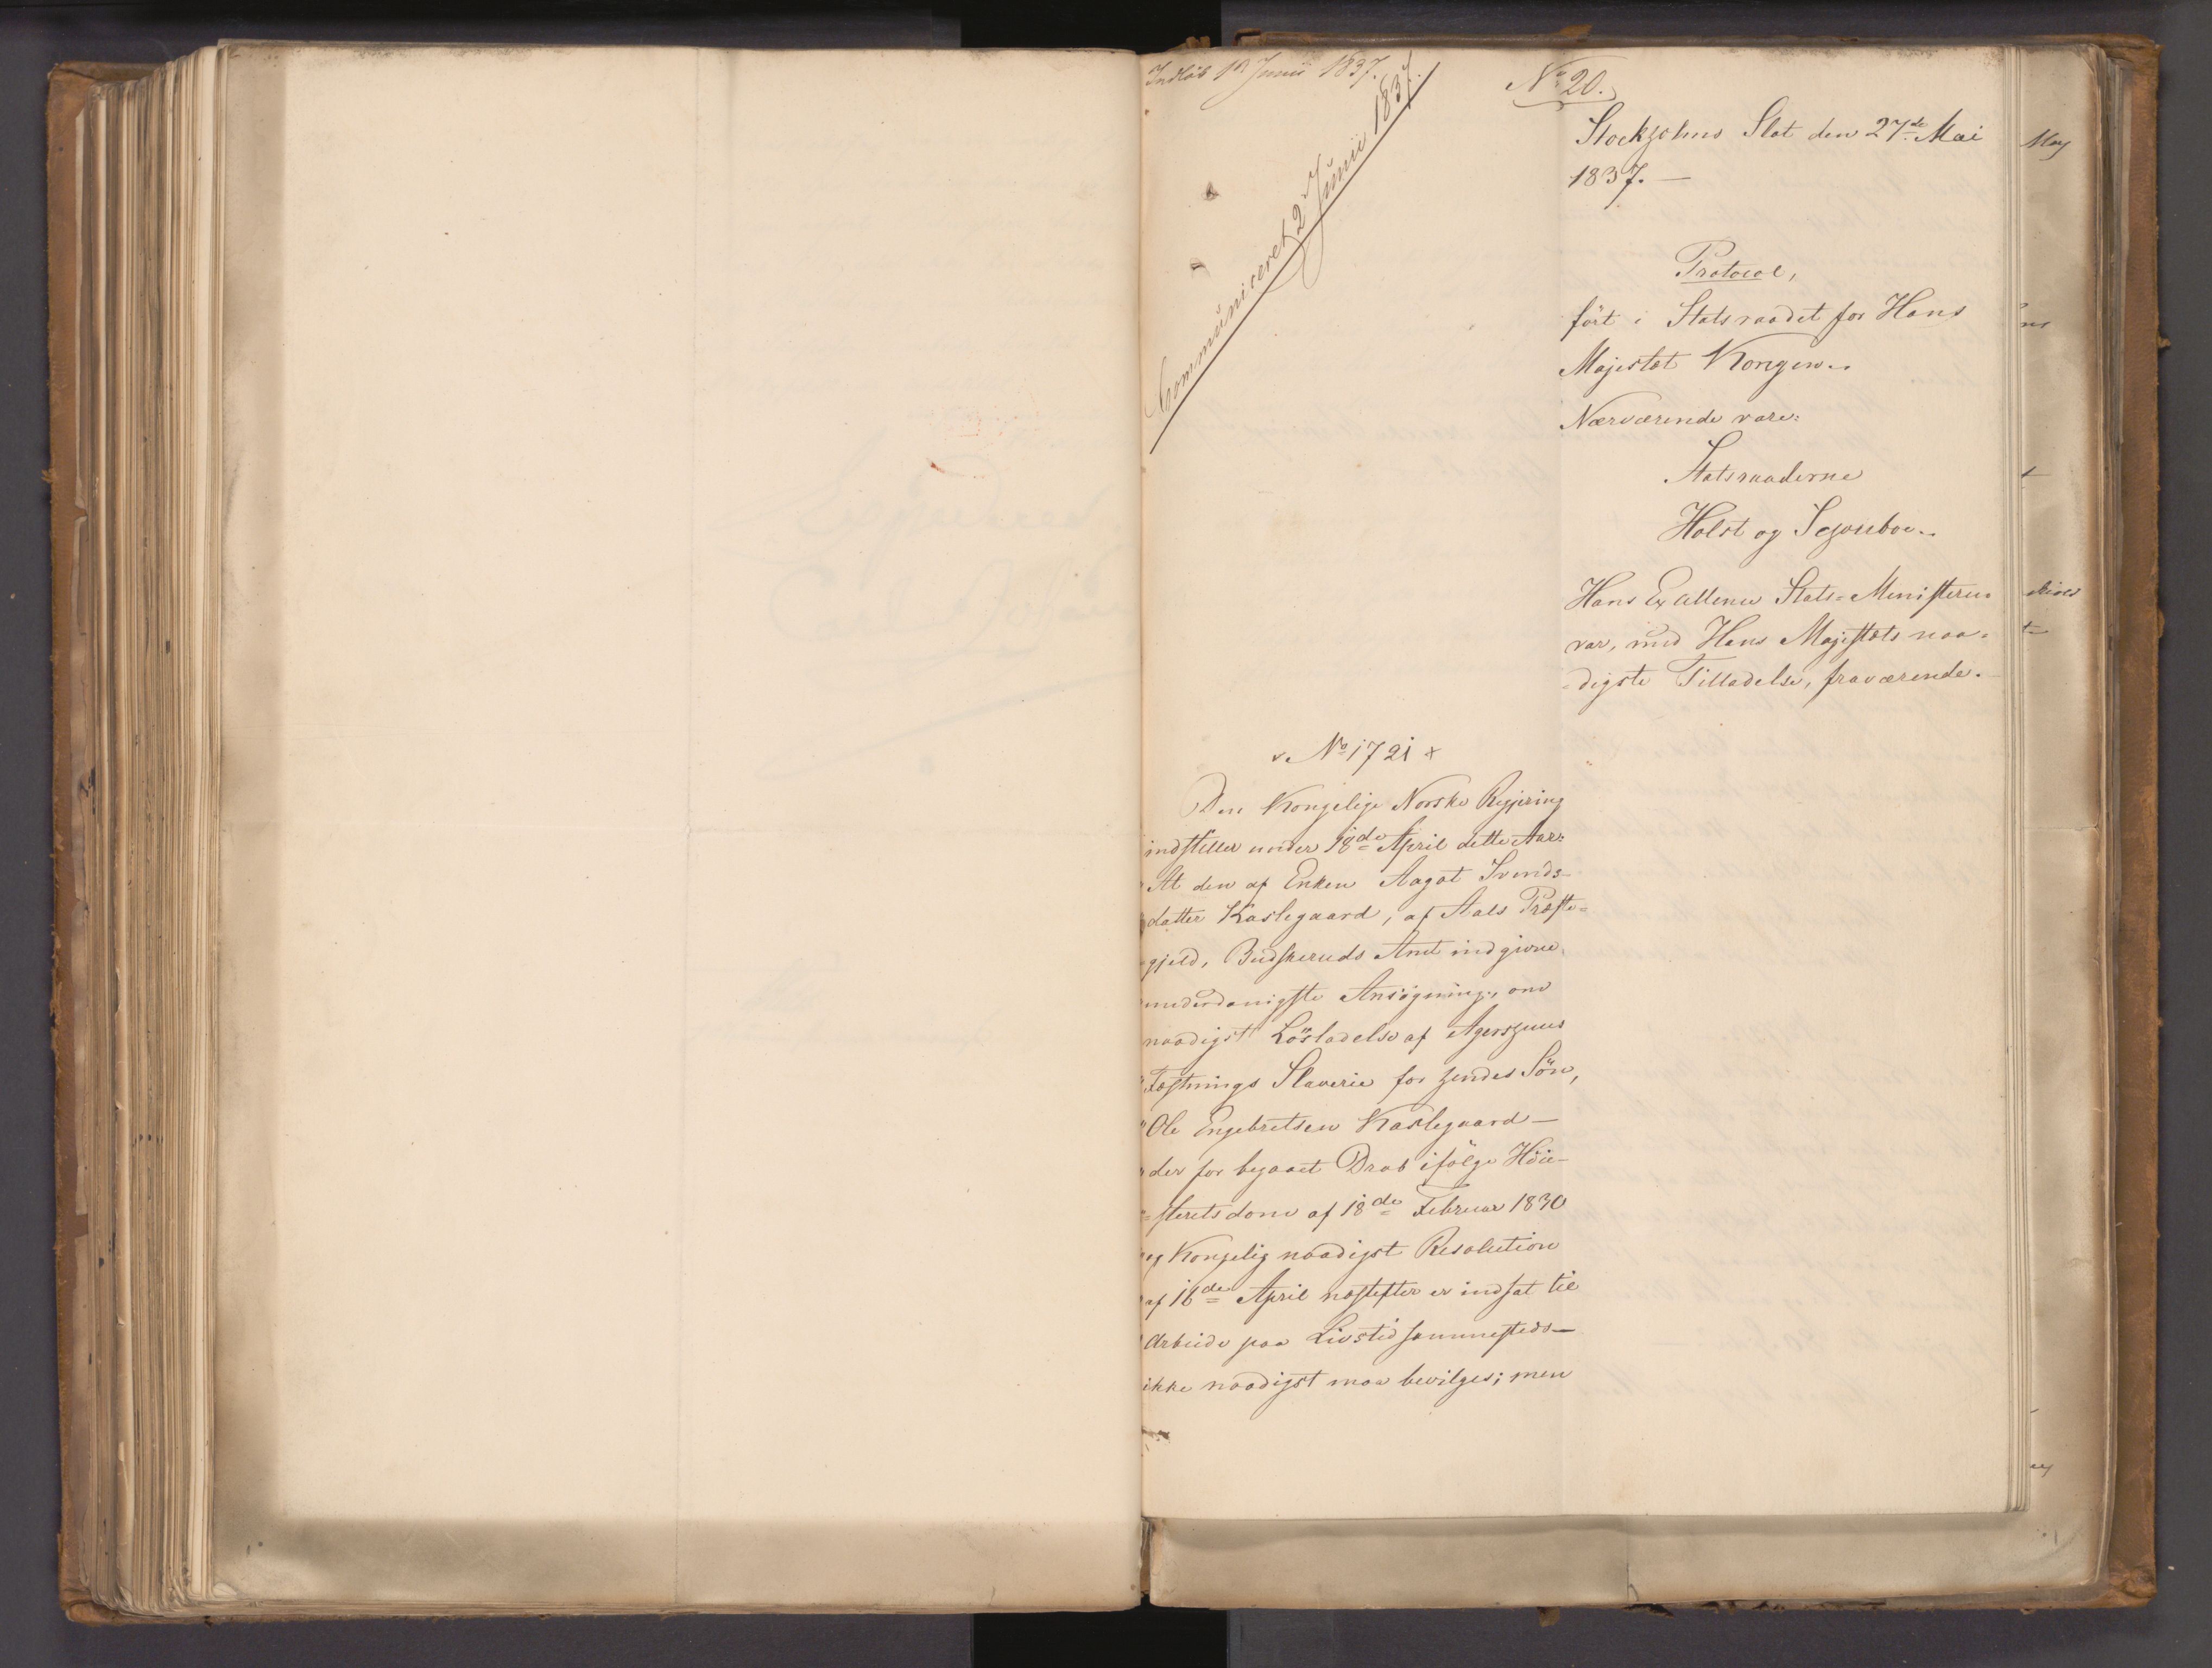 Indløb 12 Junii 1837.
Communiceret 27 Junii 1837.
No 20.
Stockholms Slot den 27de Mai
1837. —
Protocol,
ført i Statsraadet for Hans
Majestæt Kongen.
Nærværende vare:
Statsraaderne
Holst og Schouboe.
Hans Excellence Stats-Ministeren
var, med Hans Majestæts naa-
-digste Tilladelse, fraværende.
No 1721
Den Kongelige Norske Regjering
indstiller under 18de April dette Aar:
At den af Enken Aagot Svends-
datter Kaslegaard, af Aals Præste-
gjeld, Budskeruds Amt indgivne
underdanigste Ansøgning, om
naadigst Løsladelse af Agershuus
Fæstnings Slaverie for hendes Søn,
Ole Engebretsen Kaslegaard —
der for begaaet Drab ifølge Høie-
-steretsdom af 18de Februar 1830
og Kongelig naadigst Resolution
af 16de April næstefter er indsat til
Arbeide paa Livstid sammesteds —
ikke naadigst maa bevilges; men
May